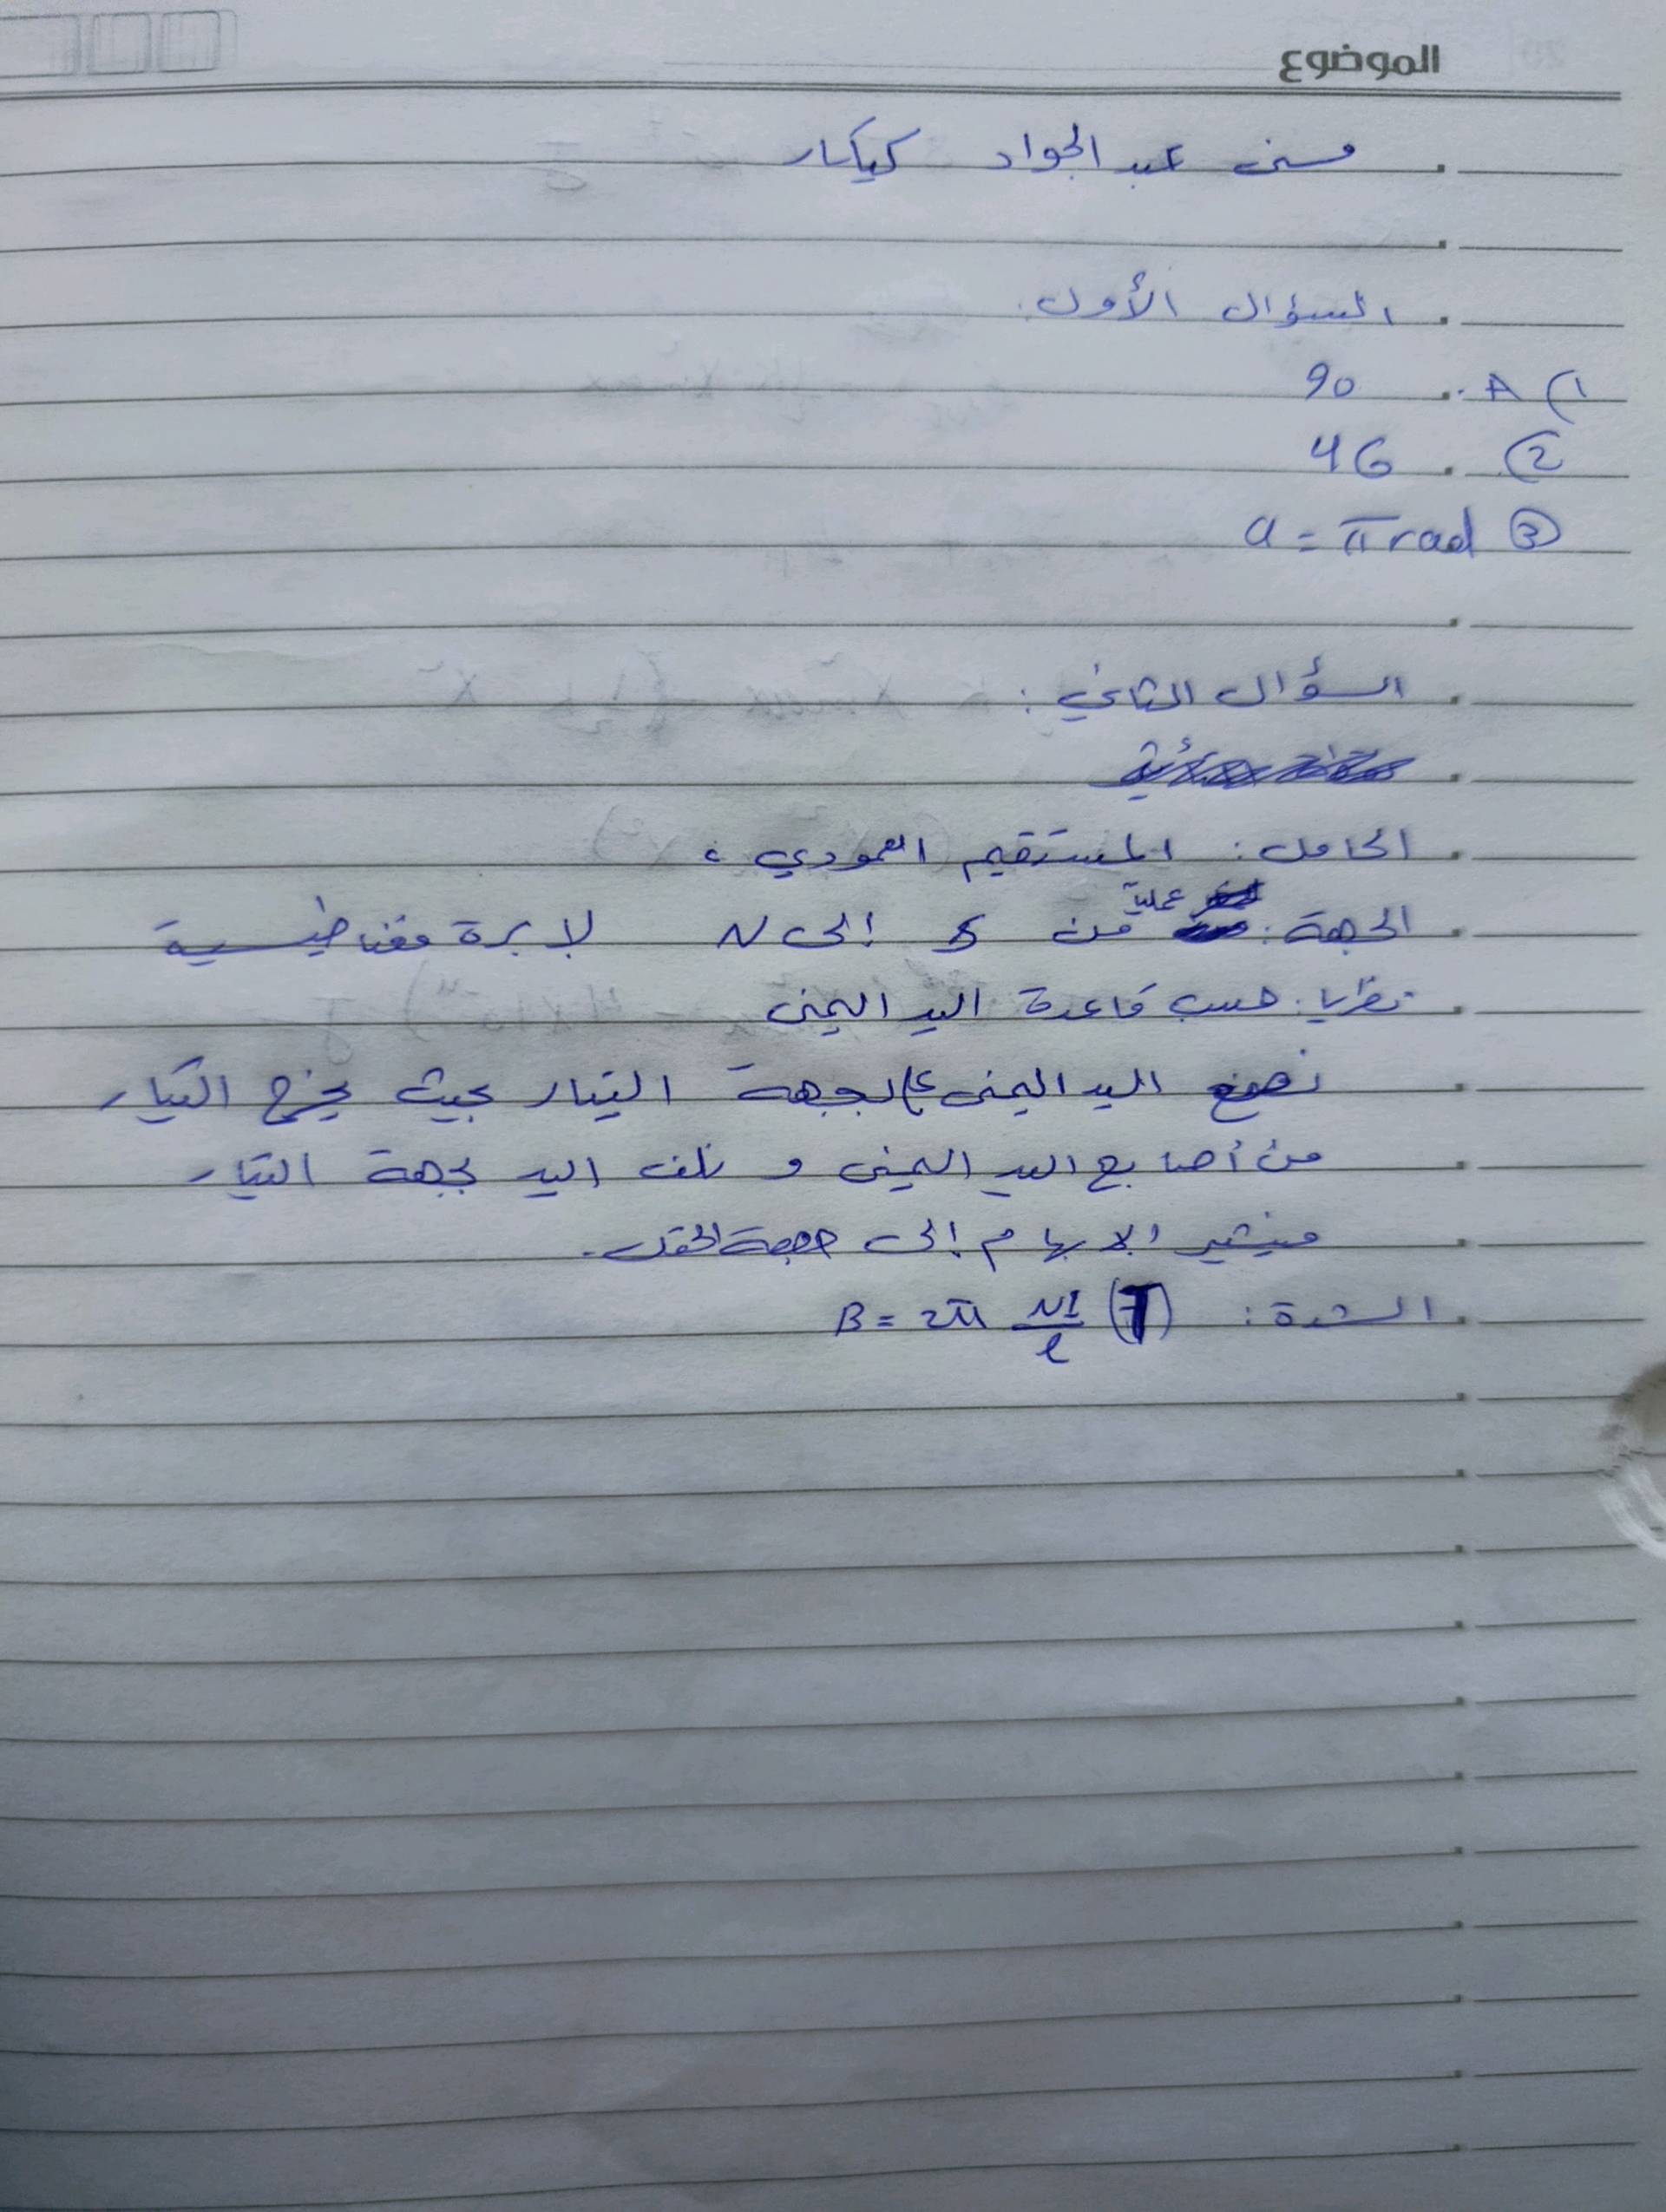 الموضوع
عبد الجواد كيكار
السؤال الأول.
1) A 90
2) 4G
3) a = π rad
السؤال الثاني:
الحامل: المستقيم العمودي،
الجهة: عملياً من S إلى N لابرة مغناطيسية
نظريا: حسب قاعدة اليد اليمنى
نضع اليد اليمنى لجهة التيار بحيث يخرج التيار
من أصابع اليد اليمنى و نلف اليد لجهة التيار
فيشير الابهام إلى جهة الحقل.
الشدة: B = 2π NI/l (T)